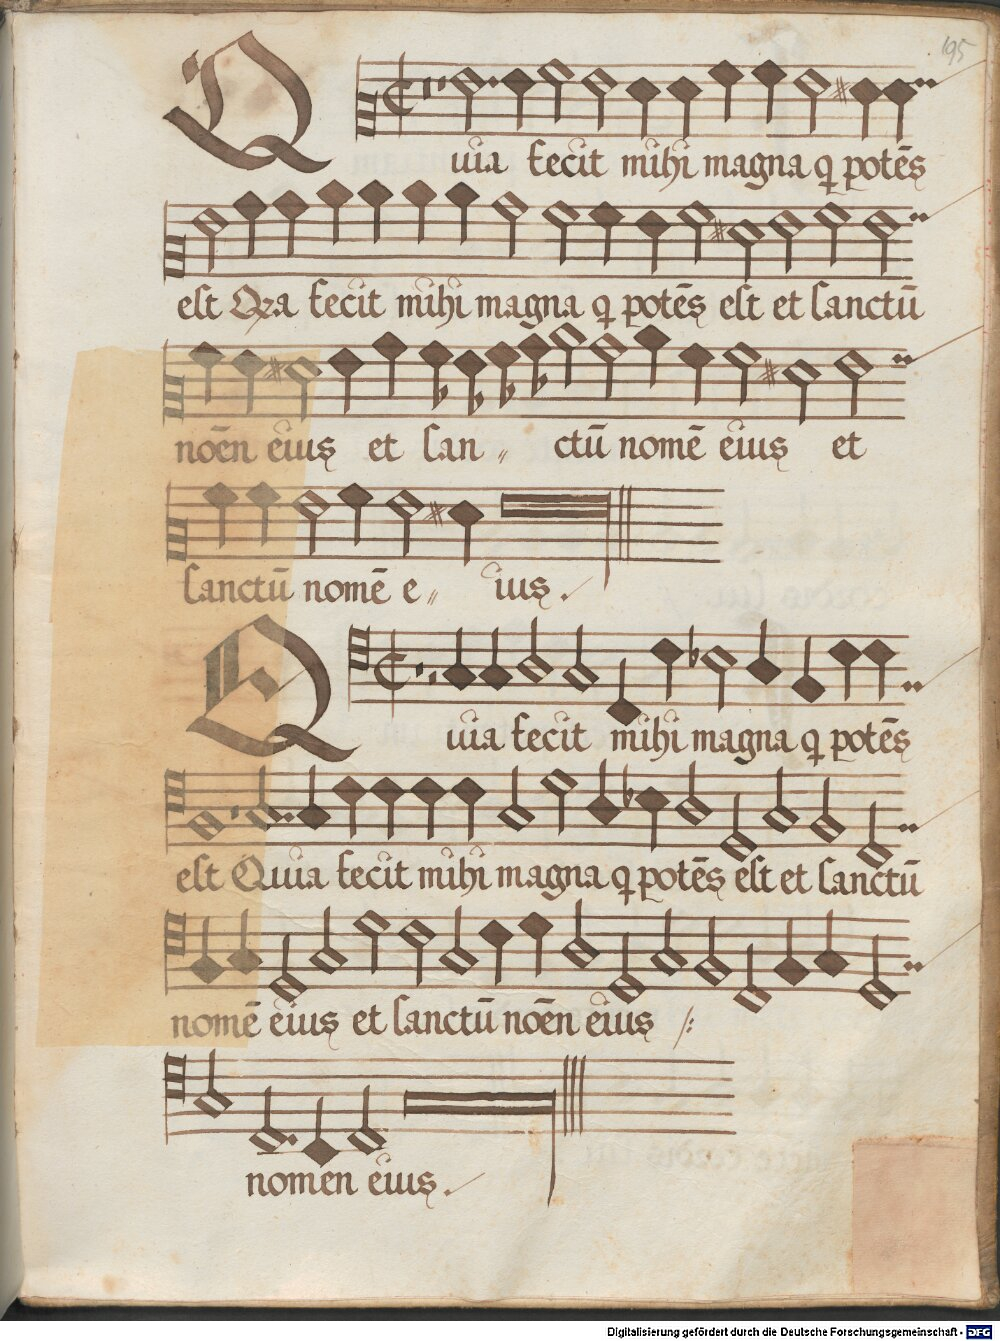 195
Quia fecit mihi magna q potēs
est Qꝛa fecit mihi magna q potēs est et sanctū
noēn eius et san〃ctū nomē eius et
sanctū nomē e〃ius.
Quia fecit mihi magna q potēs
est Quia fecit mihi magna q potēs est et sanctū
nomē eius et sanctū noēn eius /:
nomen eius.
Digitalisierung gefördert durch die Deutsche Forschungsgemeinschaft - DFG